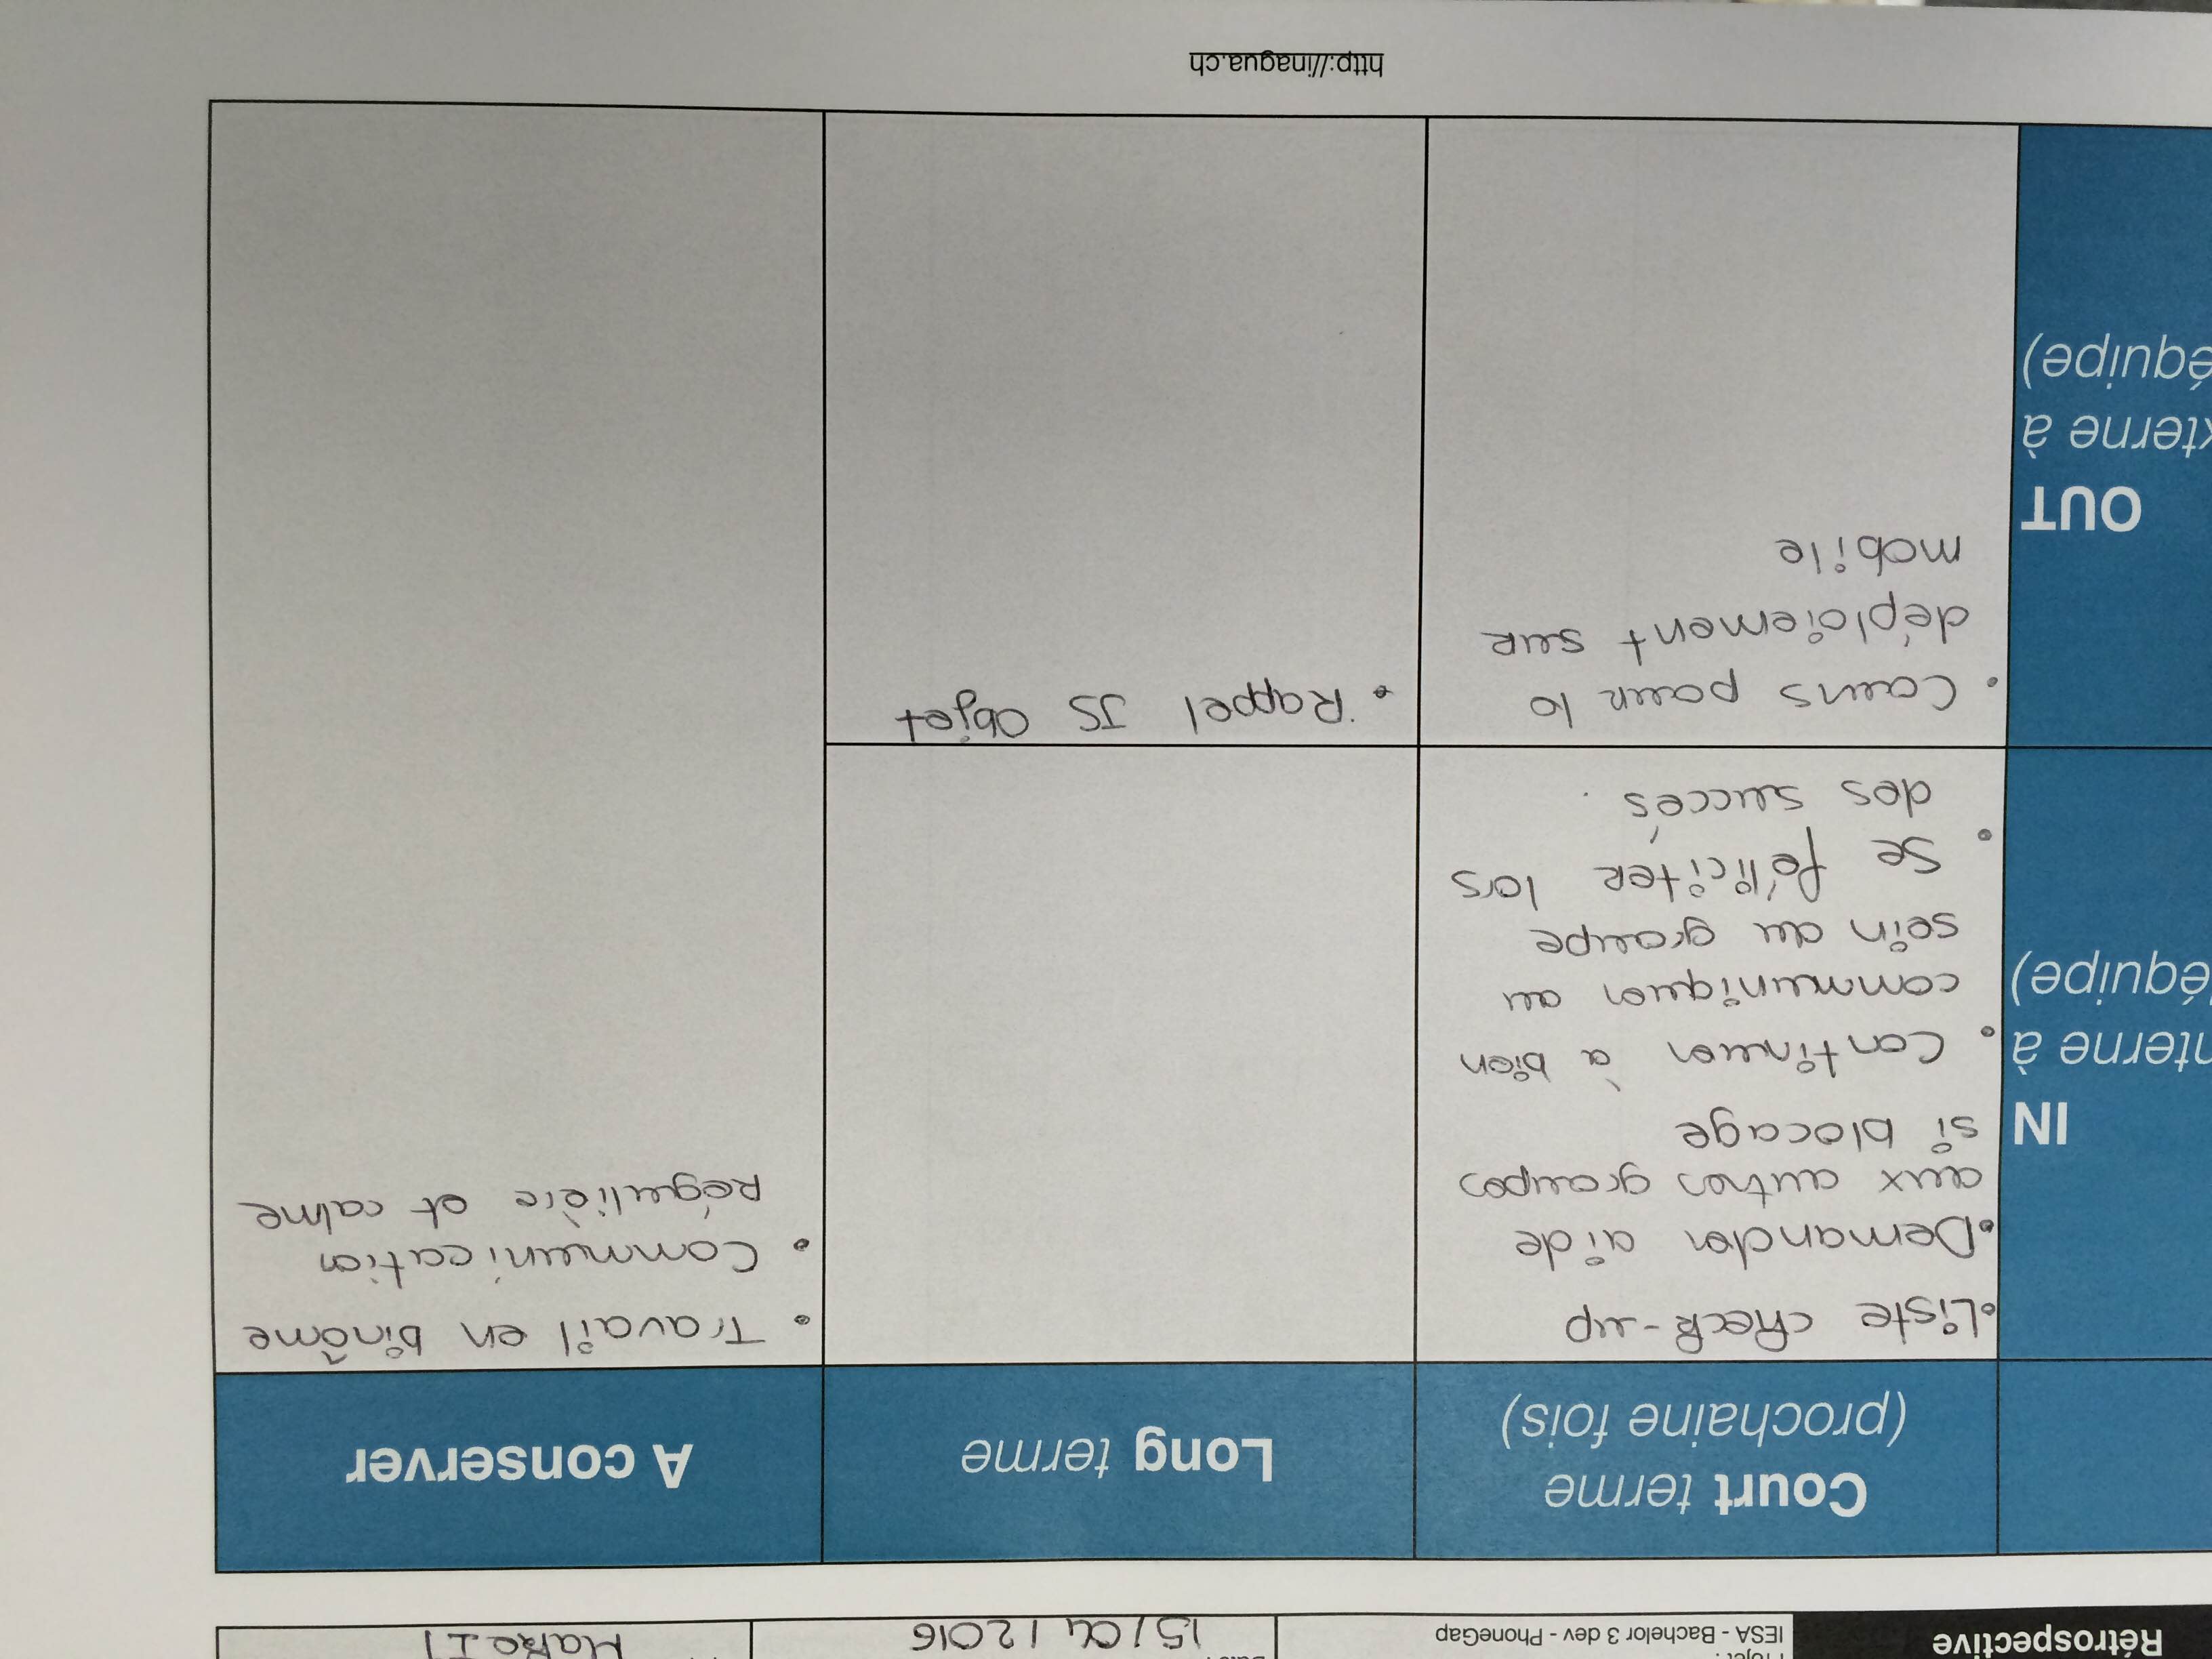 Rétrospective
IESA - Bachelor 3 dev - PhoneGap
15/04/2016
Court terme
(prochaine fois)
Long terme
A conserver
IN
nterne à
équipe)
• Liste check-up
• Demander aide
aux autres groupes
si blocage
• Continuer à bien
communiquer au
sein du groupe
• Se féliciter lors
des succés.
• Travail en binôme
• Communication
régulière et calme
OUT
xterne à
équipe)
• Cours pour le
déploiement sur
mobile
• Rappel JS Objet
http://inagua.ch